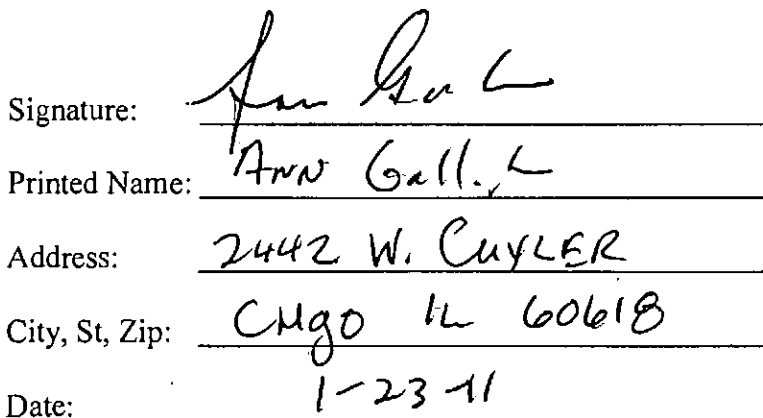 Signature:
Printed Name: Ann
Address: 2442 W. CUYLER
City, St, Zip: CHgO IL 60618
Date: 1-23-11